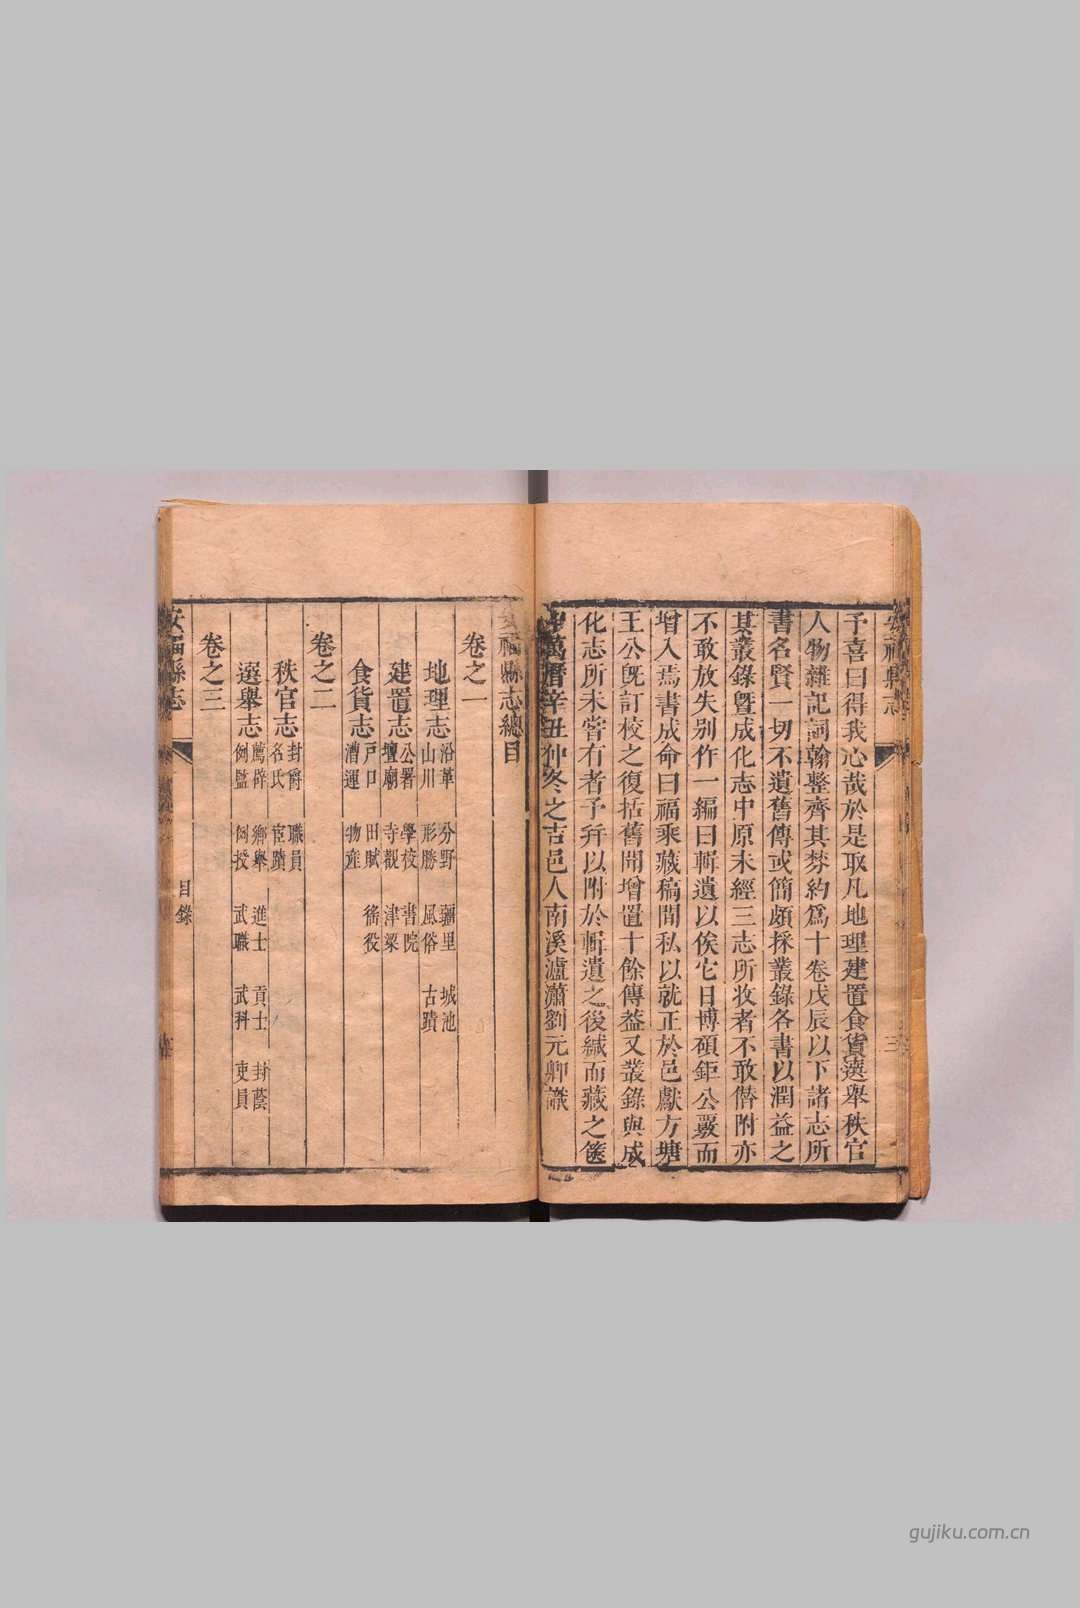 安福縣志
三
予喜曰得我心哉於是取凡地理建置食貨選舉秩官
人物雜記詞翰整齊其棼約爲十卷戊辰以下諸志所
書名賢一切不遺舊傳或簡頗採叢錄各書以潤益之
其叢錄曁成化志中原未經三志所收者不敢僭附亦
不敢放失别作一編曰輯遺以俟它日博碩鉅公覈而
增入焉書成命曰福乘藏稿間私以就正於邑獻方塘
王公旣訂校之復括舊聞增置十餘傳葢又叢錄與成
化志所未嘗有者予幷以附於輯遺之後緘而藏之篋
中萬曆辛丑仲冬之吉邑人南溪瀘瀟劉元卿識
安福縣志總目
卷之一
地理志 沿革 分野 疆里 城池
山川 形勝 風俗 古蹟
建置志 公署 學校 書院
壇廟 寺觀 津梁
食貨志 戸口 田賦 徭役
漕運 物產
卷之二
秩官志 封爵 職員
名氏 宦蹟
選舉志 薦辟 鄉舉 進士 貢士 封蔭
例監 例授 武職 武科 吏員
卷之三
安福縣志
目錄
gujiku.com.cn